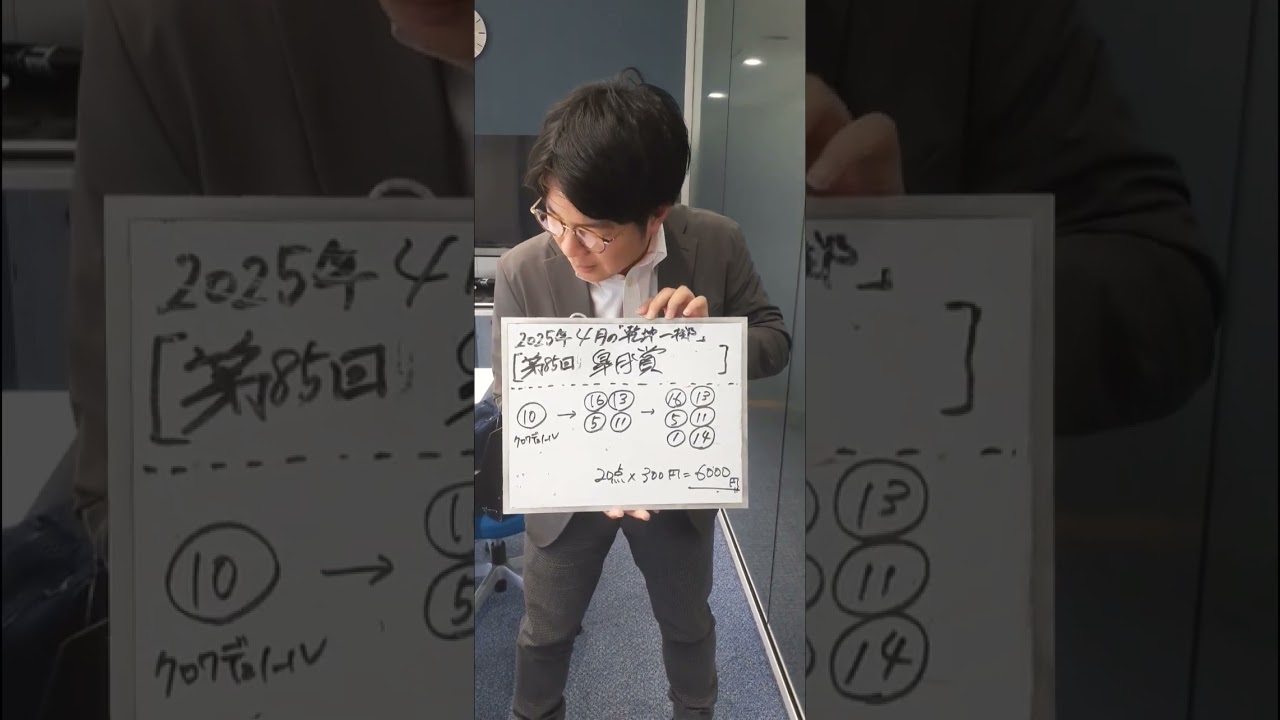 2025年4月の「乾坤一擲」
[第85回 皐月賞]
⑩ → ⑯ ⑬ → ⑯ ⑬
⑤ ⑪ ⑤ ⑪
クロワデュノール ① ⑭
20点×300円=6000円